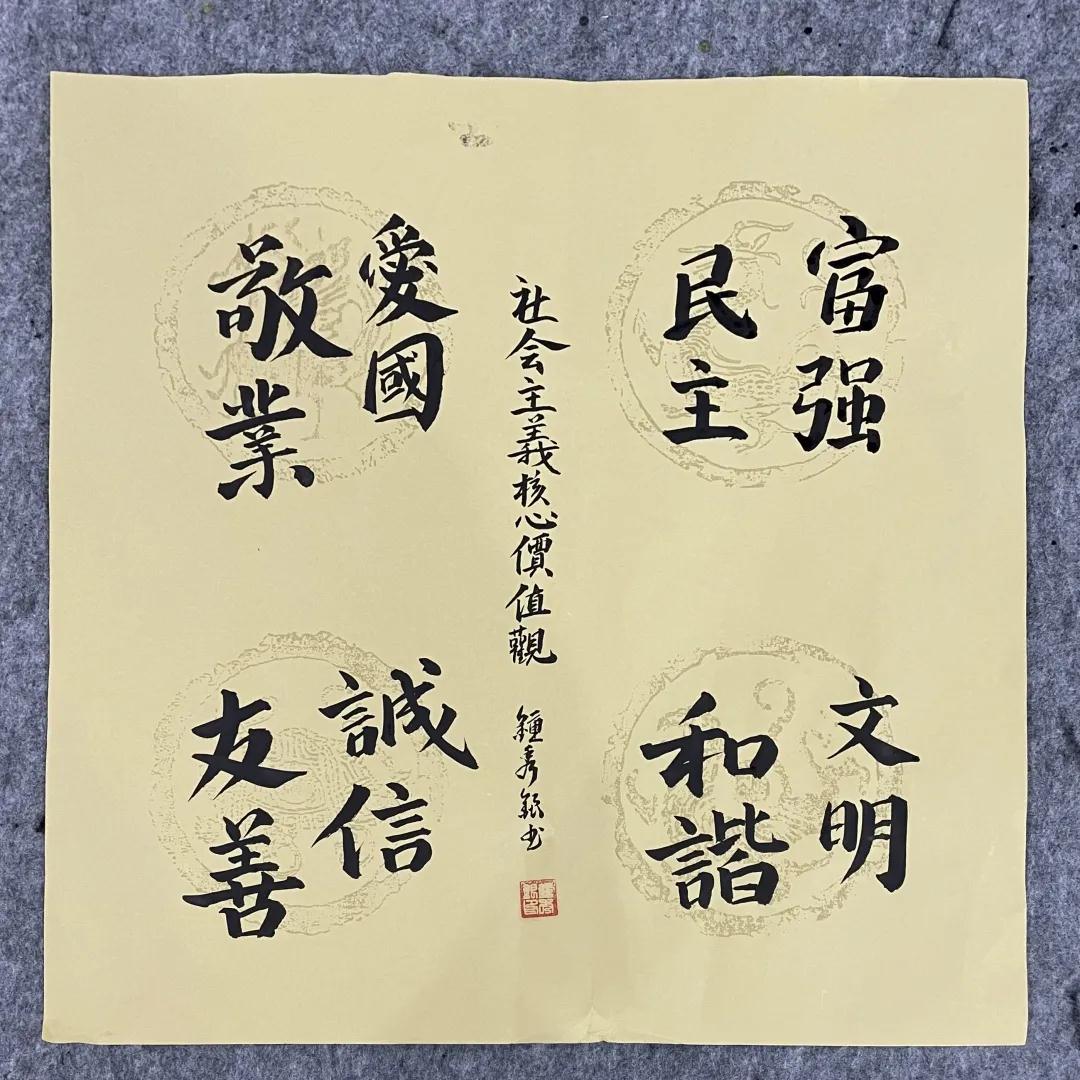 富强
民主
文明
和諧
社会主義核心價值觀
鍾秀銀书
愛國
敬業
誠信
友善